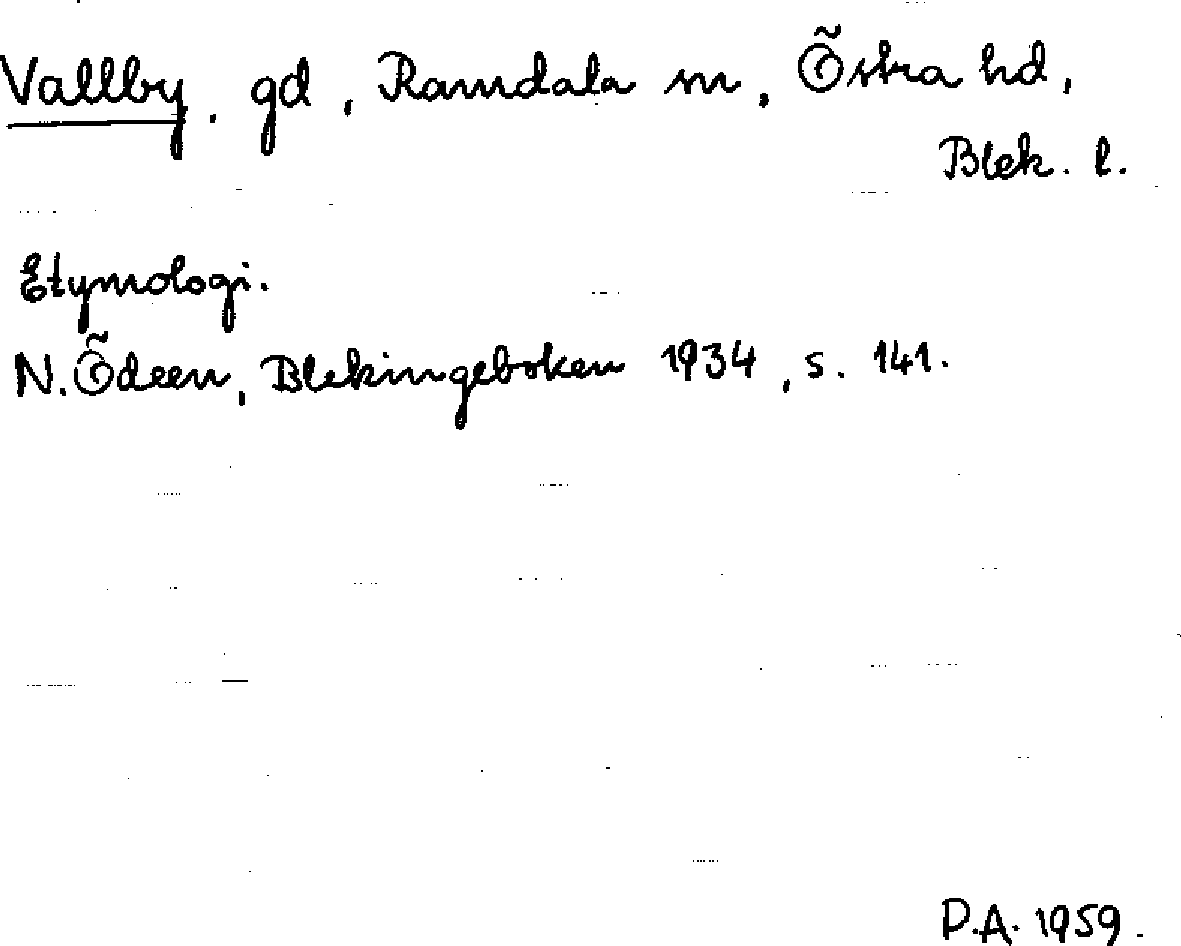 Vallby. gd, Ramdala sn, Östra hd,
Blek. l.
Etymologi.
N. Ödeen, Blekingeboken 1934, s. 141.
P.A. 1959.